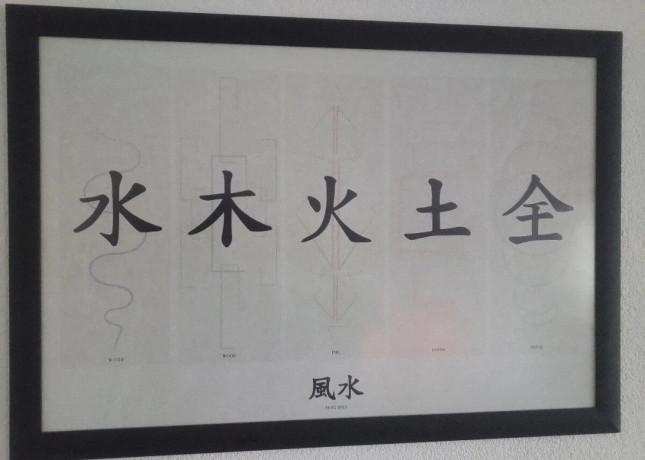 水 木 火 土 全
WATER WOOD FIRE EARTH METAL
風水
FENG SHUI